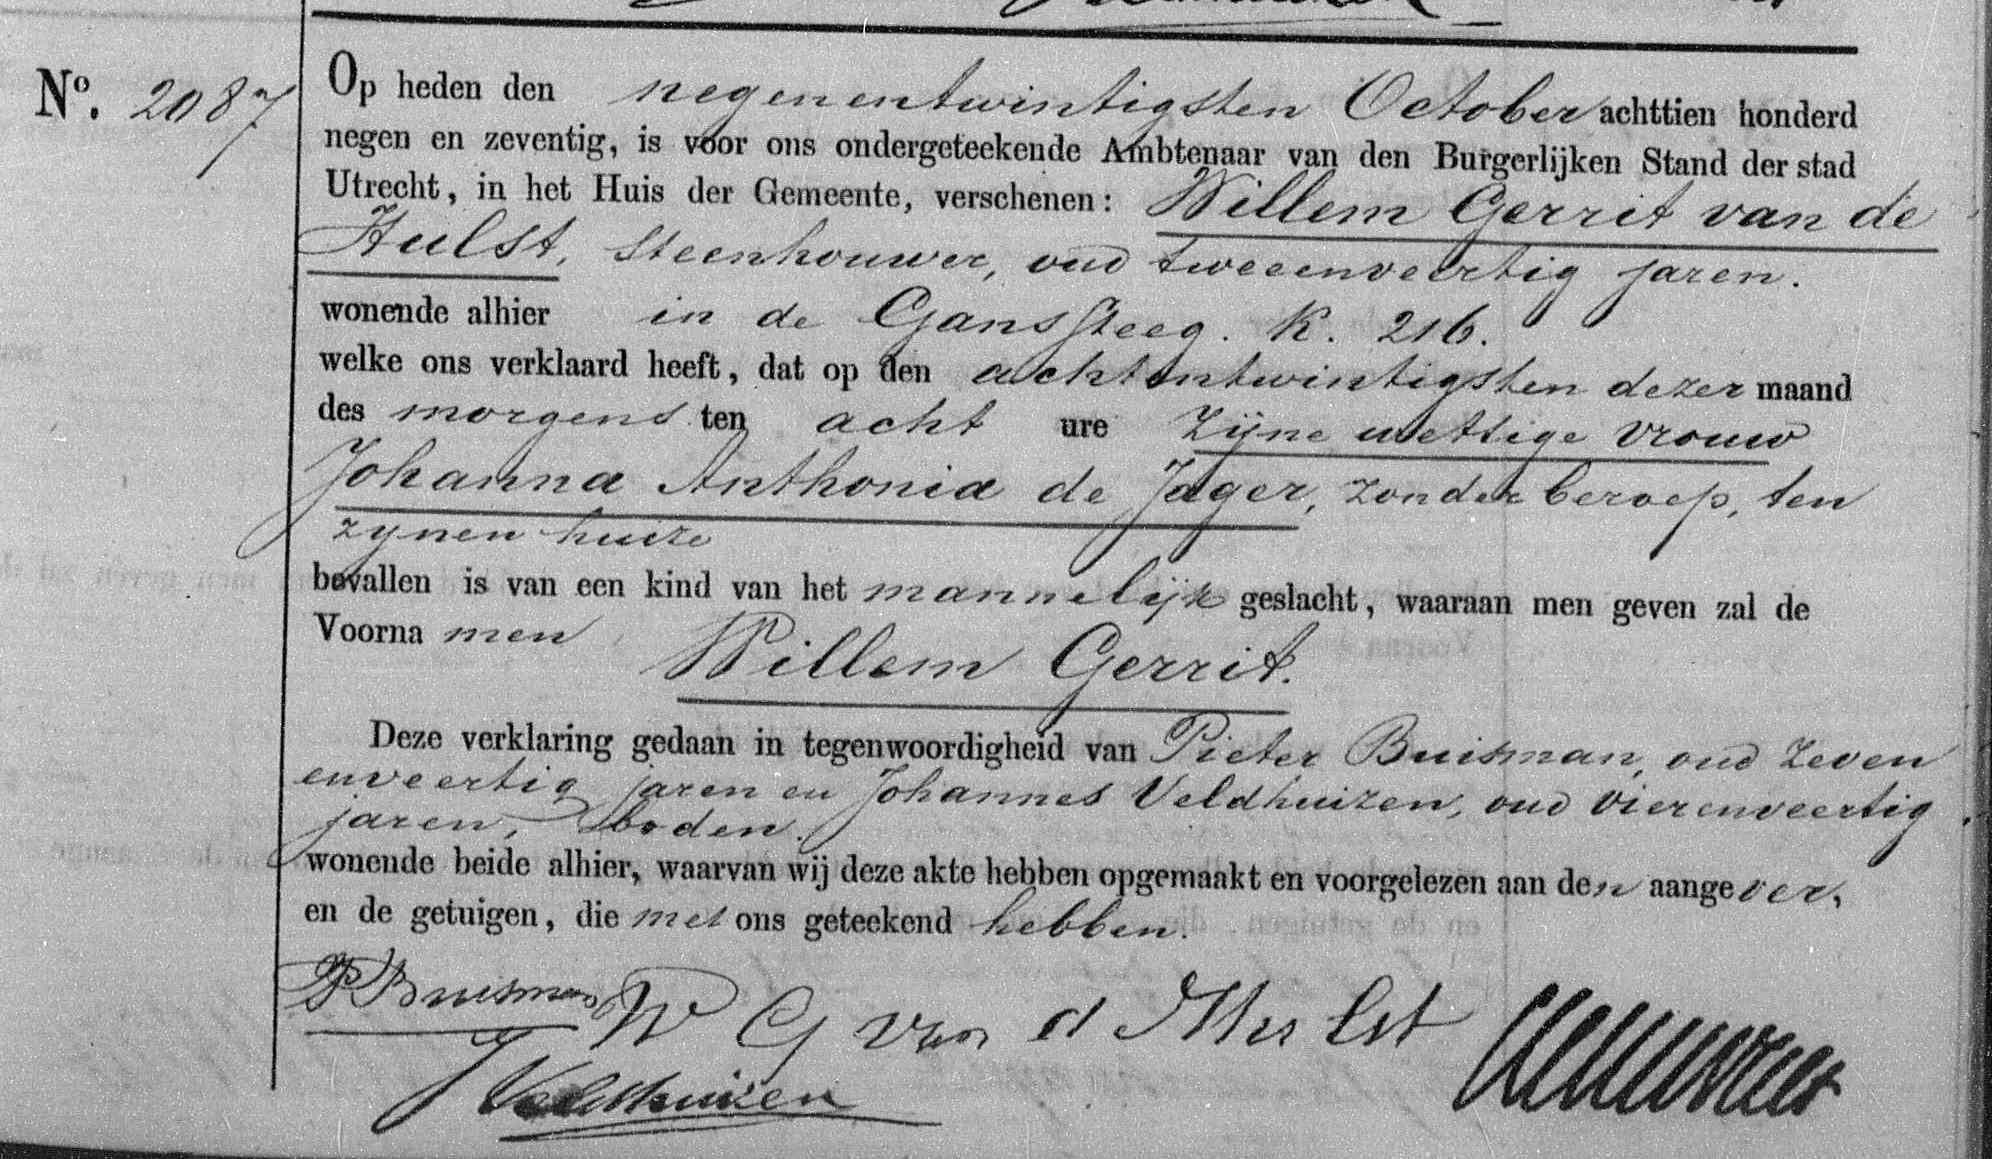 No. 2087
Op heden den negenentwintigsten October achttien honderd
negen en zeventig, is voor ons ondergeteekende Ambtenaar van den Burgerlijken Stand der stad
Utrecht, in het Huis der Gemeente, verschenen: Willem Gerrit van de
Hulst, steenhouwer, oud tweeenveertig jaren.
wonende alhier in de Ganssteeg. K. 216.
welke ons verklaard heeft, dat op den achtentwintigsten dezer maand
des morgens ten acht ure zijne wettige vrouw
Johanna Anthonia de Jager, zonder beroep, ten
zijnen huize
bevallen is van een kind van het mannelijk geslacht, waaraan men geven zal de
Voorna men Willem Gerrit.
Deze verklaring gedaan in tegenwoordigheid van Pieter Buisman, oud zeven
enveertig jaren en Johannes Veldhuizen, oud vierenveertig
jaren, boden.
wonende beide alhier, waarvan wij deze akte hebben opgemaakt en voorgelezen aan den aangever,
en de getuigen, die met ons geteekend hebben.
P Buisman W G van d Hulst
J Veldhuizen